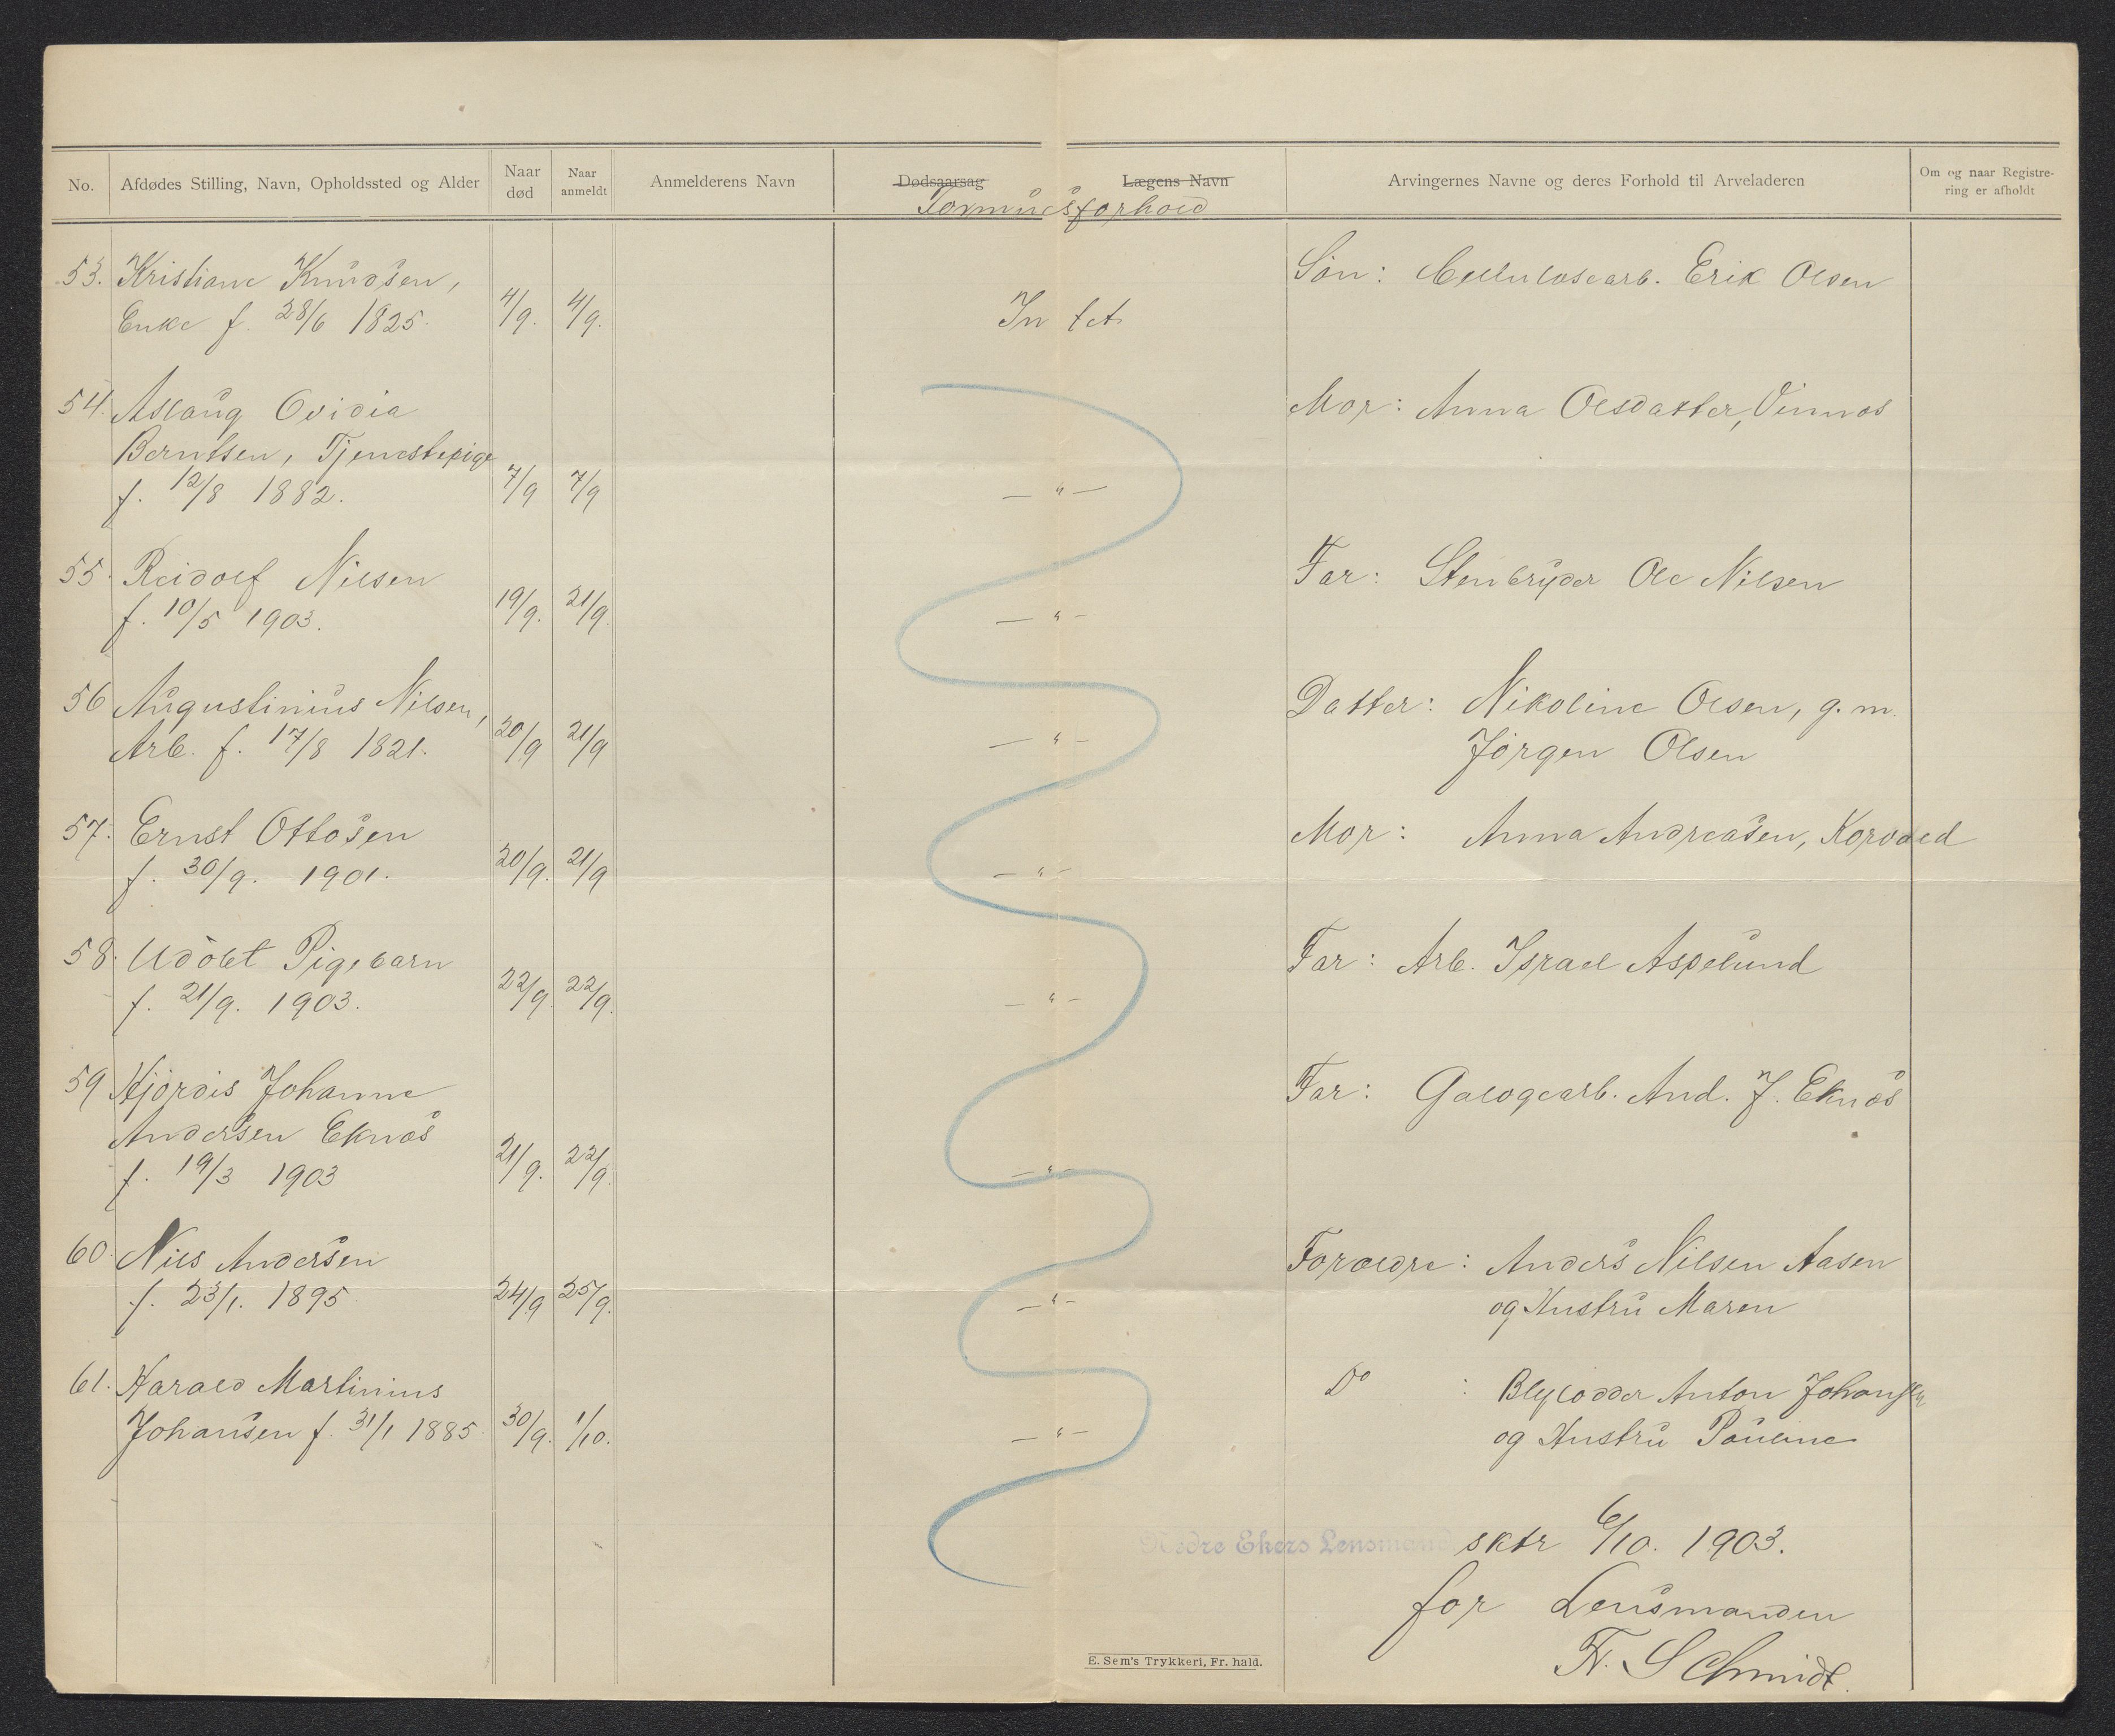 No.
Afdødes Stilling, Navn, Opholdssted og Alder
Naar død
Naar anmeldt
Anmelderens Navn
Dødsaarsag
Lægens Navn
Formuesforhold
Arvingernes Navne og deres Forhold til Arveladeren
Om og naar Registre-
ring er afholdt
53. Kristiane Knudsen,
Enke f. 28/6 1825. 4/9. 4/9. Intet
Søn: Cellulosearb. Erik Olsen
54. Aslaug Ovidia
Berntsen, Tjenestepige
f. 12/8 1882. 7/9 7/9 — " —
Mor: Anna Olsdatter, Vinnæs
55. Reidolf Nilsen
f. 10/5 1903. 19/9. 21/9. — " —
Far: Stenbryder Ole Nilsen
56 Augustinius Nilsen,
Arb. f. 17/8 1821. 20/9 21/9 — " —
Datter: Nikoline Olsen, g. m.
Jørgen Olsen
57. Ernst Ottosen
f. 30/9. 1901. 20/9. 21/9 — " —
Mor: Anna Andreasen, Korvald
58. Udøbt Pigebarn
f. 21/9. 1903. 22/9. 22/9. — " —
Far: Arb. Israel Aspelund
59 Hjørdis Johanne
Andersen Eknæs
f. 19/3 1903 21/9. 22/9. — " —
Far: Galogearb. And. J. Eknæs
60. Nils Andersen
f. 23/1. 1895. 24/9 25/9. — " —
Forældre: Anders Nilsen Aasen
og Hustru Maren
61. Harald Martinius
Johansen f. 31/1 1885. 30/9. 1/10. — " —
Do : Blylodder Anton Johansen
og Hustru Pauline
Nedre Ekers Lensmand sktr 6/10. 1903.
for Lensmanden
Fr. Schmidt.
E. Sem's Trykkeri, Fr. hald.